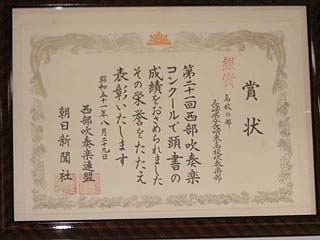 賞状
銀賞
高校の部
第二十一回西部吹奏楽
コンクールで頭書の
成績をおさめられました
その栄誉をたたえ
表彰いたします
昭和五十一年八月二十九日
西部吹奏楽連盟
朝日新聞社